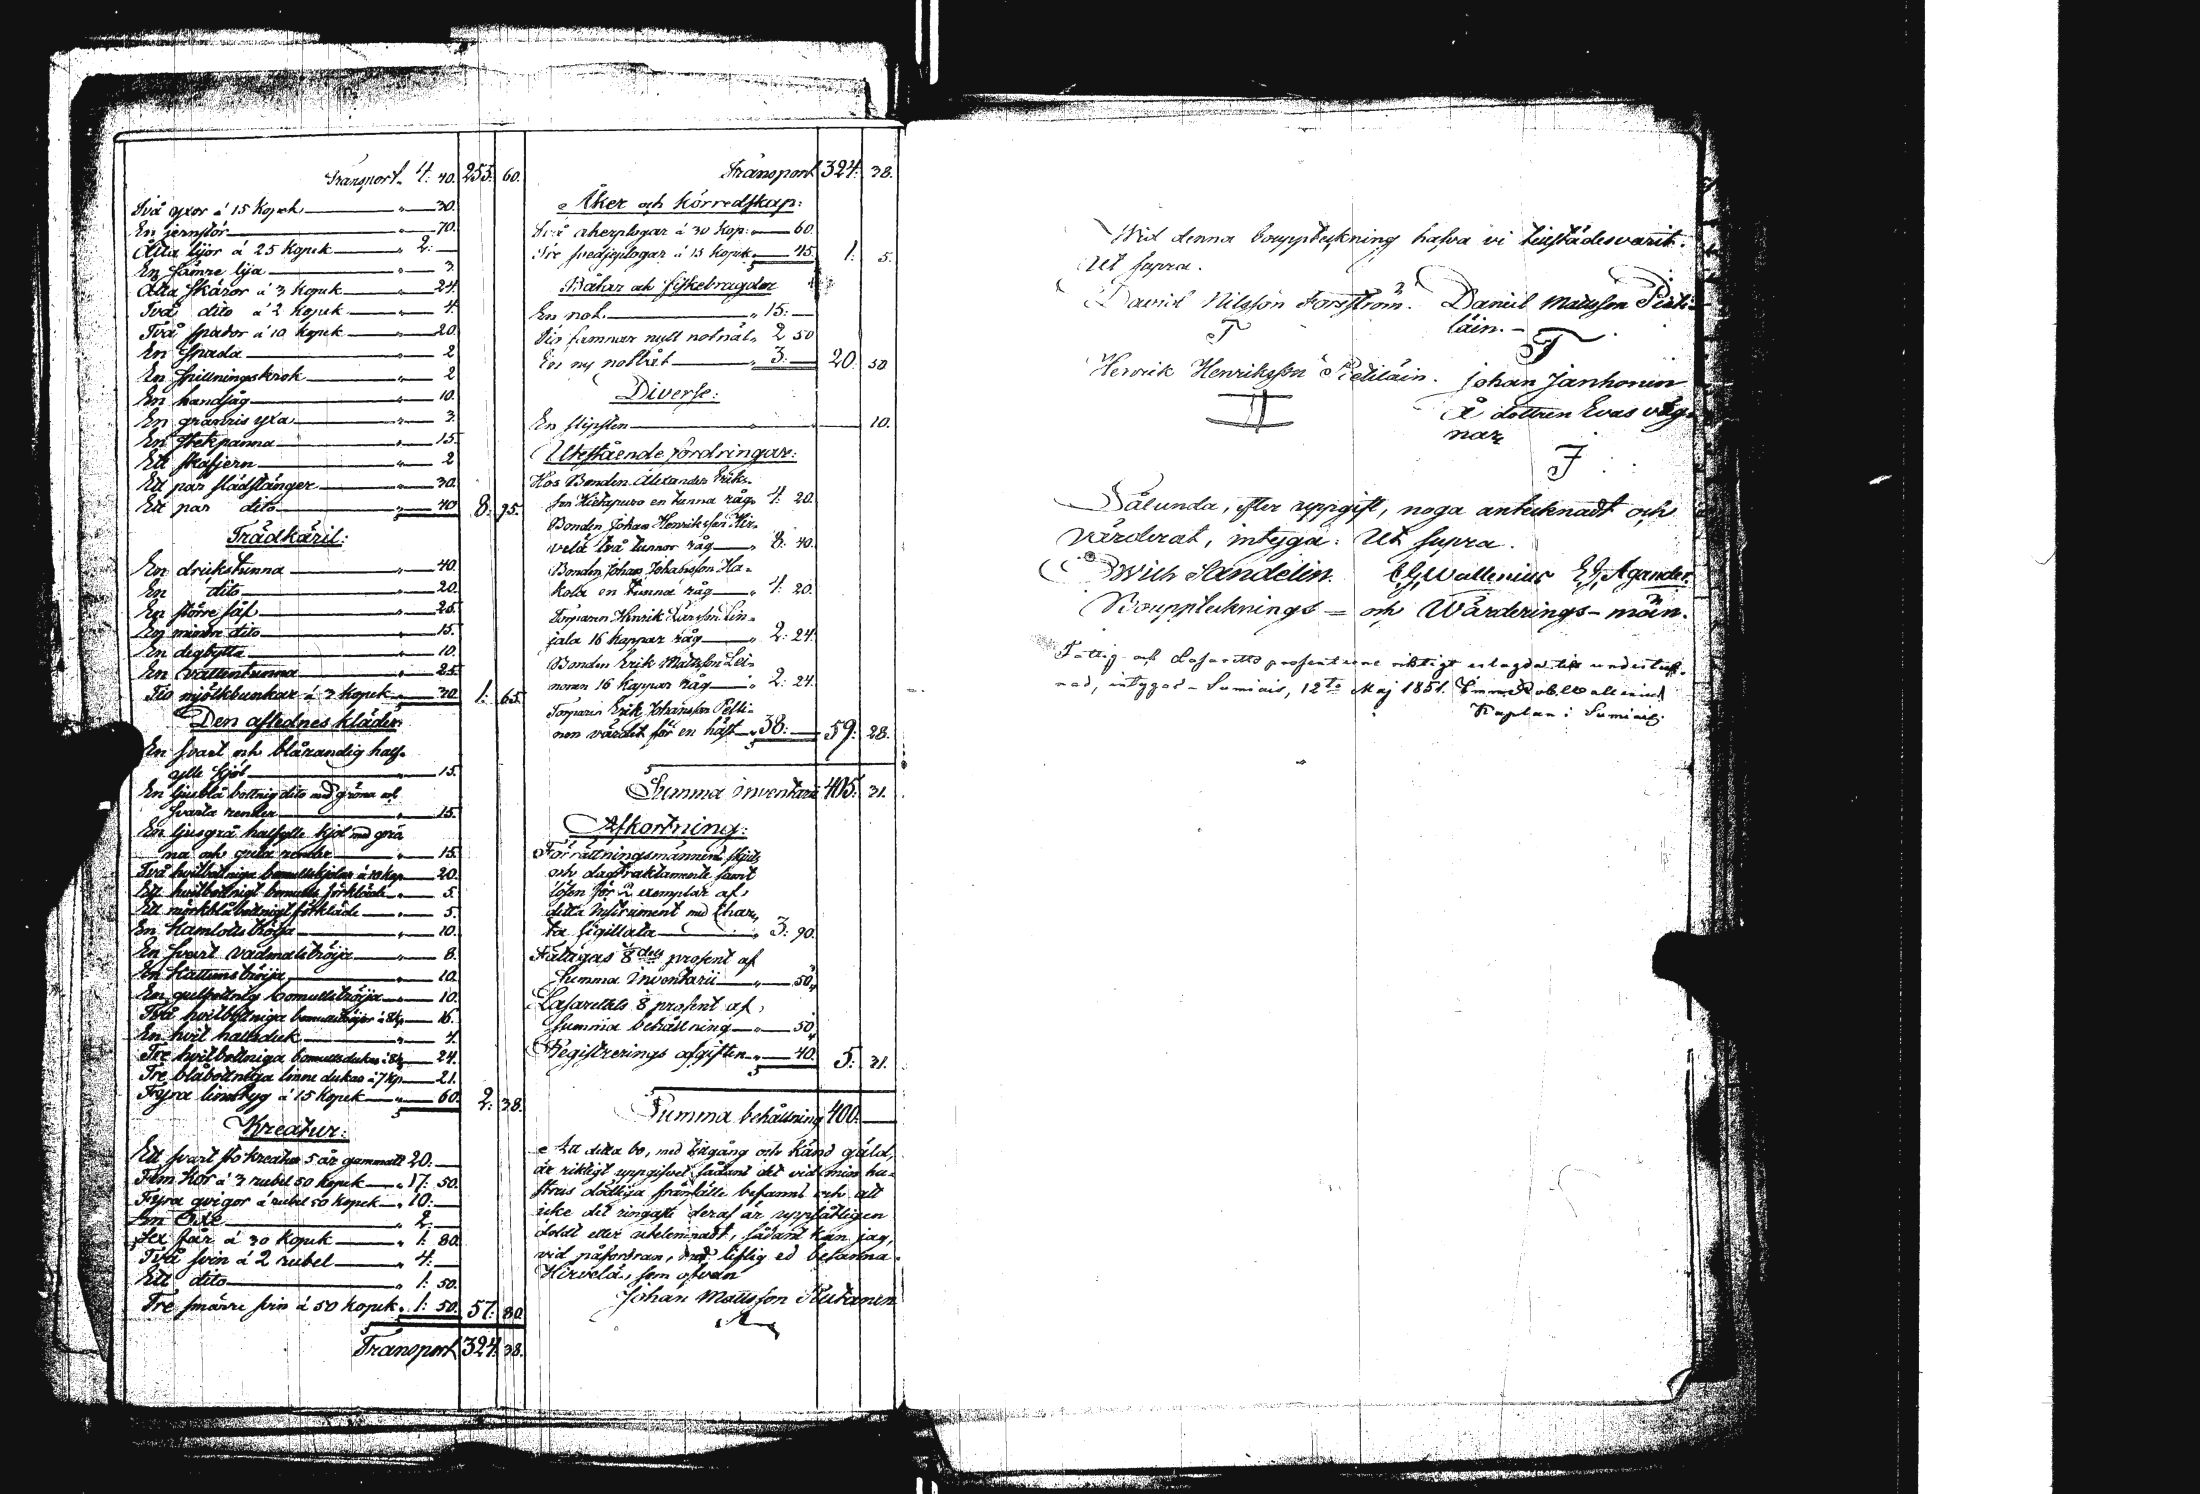 Transport. 4: 40. 255: 60.
Två yxor á 15 kopek 30.
En jernstör 70.
Åtta lijor á 25 kopek 2:
En sämre lija 3.
Åtta skäror á 3 kopek 24
Två dito á 2 kopek 4.
Två spador á 10 kopek 20
En spada 2
En spillningskrok 2
En handsåg 10.
En granris yxa 3.
En stekpanna 15.
Ett skafjern 2
Ett par slädstänger 30.
Ett par dito 40 8: 95.
Trädkäril:
En drickstunna 40.
En dito 20.
En större så 25.
En mindre dito 15.
En degbytta 10.
En vattentunna 25.
Tio mjölkbunkar á 3 kopek 30 1: 65
Den aflednes kläder
En svart och blårandig half-
ylle kjol 15.
En ljusblå bottnig dito med gröna och
svarta render 15.
En ljusgrå halfylle kjol med grö
na och gula render 15.
Två hvitbottniga bomullskjolar á 10 kop 20.
Ett hvitbottnigt bomulls förkläde 5.
Ett mörkblåbottnigt förkläde 5.
En Kamlottströja 10.
En svart vadmalströja 8.
En Kattunströija 10.
En gulbottnig bomullströija 10.
Två hvitbottniga bomullströijor á 8 kp 16.
En hvit halsduk 4.
Tre hvitbottniga bomullsdukar á 8 kp 24.
Tre blåbottniga linne dukar á 7 kp 21.
Fyra linntyg á 15 kopek 60. 2: 38.
Kreatur:
Ett svart sto kreatur 5 år gammalt 20:
Fem Kor á 3 rubel 50 kopek 17: 50.
Fyra qvigor á 2 rubel 50 kopek 10:
En Oxe 2:
Sex får á 30 kopek 1: 80.
Två svin á 2 rubel 4:
Ett dito 1: 50.
Tre smärre svin á 50 kopek 1: 50. 57: 80
Transport 324: 38.
Transport 324: 38.
Åker och körredskap:
Två åkerplogar á 30 kop: 60.
Tre svedjeplogar á 15 kopek 45. 1: 5.
Båtar och fiskebragder
En not. 15:
Tio famnar nytt notnät 2 50
En ny notbåt 3: 20: 50
Diverse:
En slipsten 10.
Utestående fordringar:
Hos Bonden Alexander Eriks-
son Hietapuro en tunna råg 4: 20.
Bonden Johan Henriksson Hir-
velä två tunnor råg 8: 40.
Bonden Johan Johansson Ha-
kola en tunna råg 4: 20.
Torparen Henrik Larsson Lin-
jala 16 kappar råg 2: 24.
Bonden Erik Mattsson Lei-
nonen 16 kappar råg 2: 24.
Torparen Erik Johansson Pelli-
nen värdet för en häst 38: 59: 28.
Summa inventarii 405: 31.
Afkortning:
Förrättningsmännens skjuts
och dagtraktamente samt
lösen för 2 exemplar af
detta instrument med Char-
ta sigillata 3: 90.
Fattigas 8dels prosent af
Summa inventarii 50
Lasarettets 8 prosent af
summa behållning 50
Registrerings afgiften 40. 5: 31.
Summa behållning 400:
Att detta bo, med tilgång och känd gäld,
är riktigt uppgifvet sådant det vid min hu-
strus dödliga frånfälle befanns och att
icke det ringaste deraf är uppsåtligen
doldt eller utelemnadt, sådant kan jag,
vid påfordran, med liflig ed besanna.
Hirvelä, som ofvan
Johan Mattsson Kutanen
Wid denna bouppteckning hafva vi tillstädesvarit.
Ut supra.
David Nilsson Forsström. Daniel Mattsson Pieti-
läin.
T T
Henrik Henriksson Pietiläin. Johan Janhonen
Å dottren Evas väg-
nar
J
Sålunda, efter uppgift, noga antecknadt och
värderat, intyga: Ut supra.
Wilh Sandelin. C. G. Wallenius E. J. Agander.
Boupptecknings- och Wärderings-män.
Fattig och Lasaretts prosenterne riktigt erlagda till underteck-
nad, intygas - Sumiais, 12te Maj 1851. Emm. Rob. Wallenius
Kaplan i Sumiais.